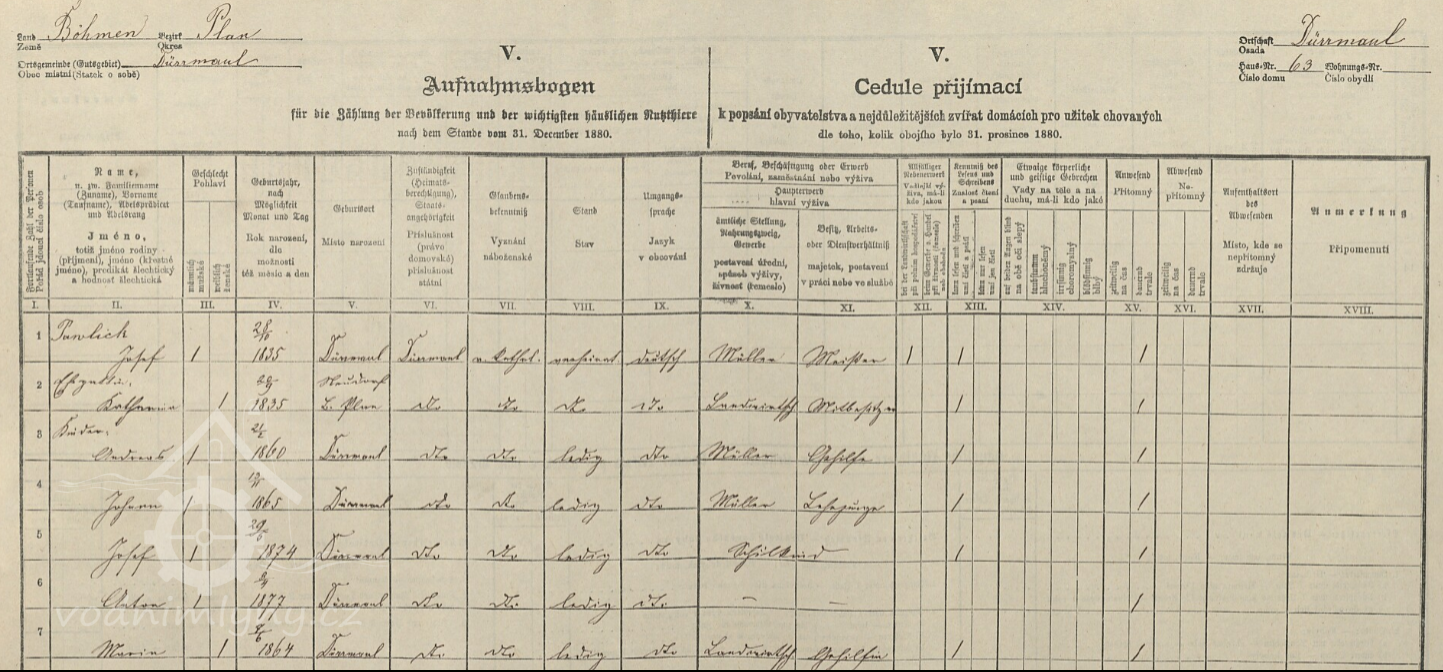 Land Böhmen Bezirk Plan
Země Okres
Ortsgemeinde (Gutsgebiet) Dürrmaul
Obec místní (Statek o sobě)
Ortschaft Dürrmaul
Osada
Haus-Nr. 63 Wohnungs-Nr.
Číslo domu Číslo obydlí
V.
Aufnahmsbogen
für die Zählung der Bevölkerung und der wichtigsten häuslichen Nutzthiere
nach dem Stande vom 31. December 1880.
V.
Cedule přijímací
k popsání obyvatelstva a nejdůležitějších zvířat domácích pro užitek chovaných
dle toho, kolik obojího bylo 31. prosince 1880.
Fortlaufende Zahl der Personen
Pořád jdoucí číslo osob
Name,
u. zw. Familienname
(Zuname), Vorname
(Taufname), Adelsprädicat
und Adelsrang
Jméno,
totiž jméno rodiny
(příjmení), jméno (křestné
jméno), predikát šlechtický
a hodnost šlechtická
Geschlecht
Pohlaví
männlich
mužské
weiblich
ženské
Geburtsjahr,
nach
Möglichkeit
Monat und Tag
Rok narození,
dle
možnosti
též měsíc a den
Geburtsort
Místo narození
Zuständigkeit
(Heimats-
berechtigung),
Staats-
angehörigkeit
Příslušnost
(právo
domovské)
příslušnost
státní
Glaubens-
bekenntniß
Vyznání
náboženské
Stand
Stav
Umgangs-
sprache
Jazyk
v obcování
Beruf, Beschäftigung oder Erwerb
Povolání, zaměstnání nebo výživa
Haupterwerb
hlavní výživa
ämtliche Stellung,
Nahrungszweig,
Gewerbe
postavení úřední,
spůsob výživy,
živnost (řemeslo)
Besitz, Arbeits-
oder Dienstverhältniß
majetek, postavení
v práci nebo ve službě
Allfälliger
Nebenerwerb
Vedlejší vý-
živa, má-li
kdo jakou
Kenntniß des
Lesens und
Schreibens
Znalost čtení
a psaní
kann lesen und schreiben
umí čísti a psáti
kann nur lesen
umí jen čísti
Etwaige körperliche
und geistige Gebrechen
Vady na těle a na
duchu, má-li kdo jaké
auf beiden Augen blind
na obě oči slepý
taubstumm
hluchoněmý
irrsinnig
choromyslný
blödsinnig
blbý
Anwesend
Přítomný
zeitweilig
na čas
dauernd
trvale
Abwesend
Ne-
přítomný
zeitweilig
na čas
dauernd
trvale
Aufenthaltsort
des
Abwesenden
Místo, kde se
nepřítomný
zdržuje
Anmerkung
Připomenutí
I. II. III. IV. V. VI. VII. VIII. IX. X. XI. XII. XIII. XIV. XV. XVI. XVII. XVIII.
1 Pawlick
Josef 1 1835 Dürrmaul Dürrmaul r. kathol. verheirat deutsch Müller Meister 1 1 1
2 Ehegattin. Neudorf
Katharina 1 1835 b. Plan dto dto dto dto Landwirtsch Mitbesitzer 1 1
3 Kinder.
Andreas 1 1860 Dürrmaul dto dto ledig dto Müller Gehilfe 1 1
4
Johann 1 1865 Dürrmaul dto dto ledig dto Müller Lehrjunge 1 1
5
Josef 1 1874 Dürrmaul dto dto ledig dto Schulkind 1 1
6
Anton 1 1877 Dürrmaul dto dto ledig dto — — 1
7
Maria 1 1864 Dürrmaul dto dto ledig dto Landwirtsch Gehilfin 1 1
vodnimlyny.cz